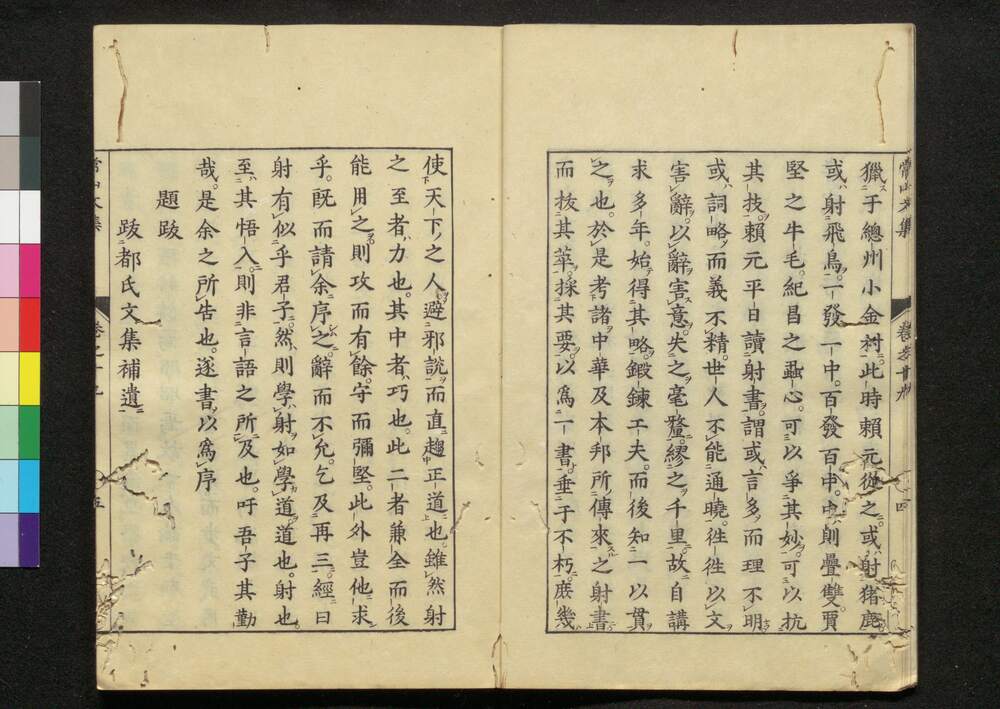 獵于總州小金村此時賴元從之或射猪鹿
或射飛鳥一發一中百發百中中則疊雙賈
堅之牛毛紀昌之蝨心可以爭其妙可以抗
其技賴元平日讀射書謂或言多而理不明
或詞略而義不精世人不能通曉往往以文
害辭以辭害意失之毫釐繆之千里故自講
求多年始得其略鍛鍊工夫而後知一以貫
之也於是考諸中華及本邦所傳來之射書
而拔其萃採其要以爲一書垂于不朽庶幾
使天下之人避邪說而直趨正道也雖然射
之至者力也其中者巧也此二者兼全而後
能用之則攻而有餘守而彌堅此外豈他求
乎既而請余序之辭而不允乞及再三經曰
射有似乎君子然則學射如學道道也射也
至其悟入則非言語之所及也吁吾子其勤
哉是余之所告也遂書以爲序
題跋
跋都氏文集補遺